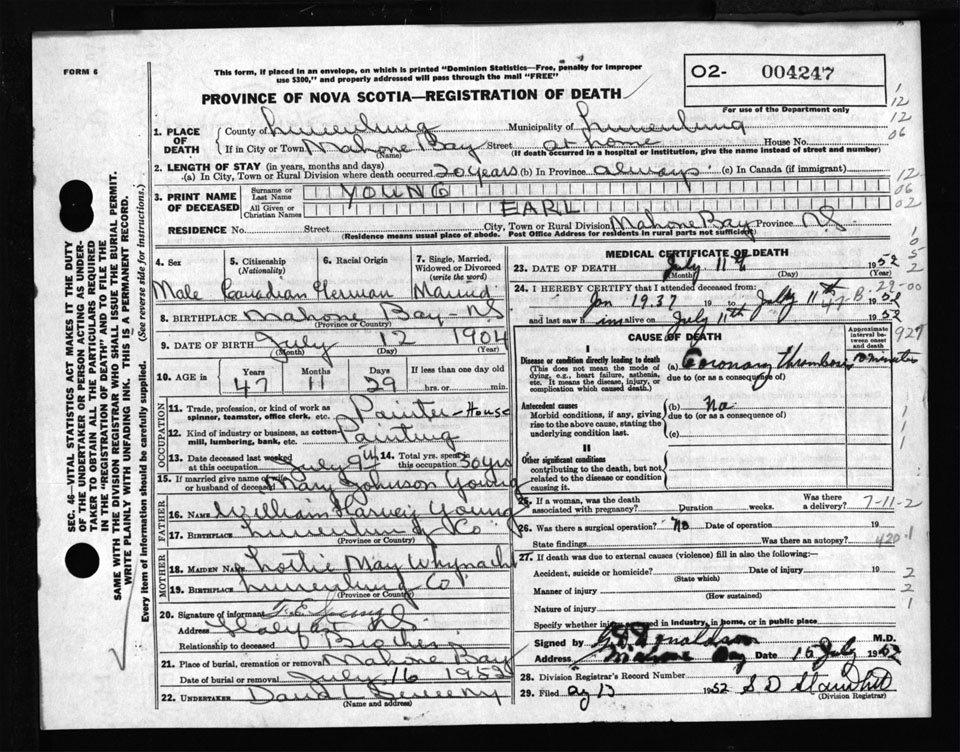 FORM 6
This form, if placed in an envelope, on which is printed "Dominion Statistics—Free, penalty for improper
use $300," and properly addressed will pass through the mail "FREE"
O2- 004247
For use of the Department only
PROVINCE OF NOVA SCOTIA—REGISTRATION OF DEATH
1. PLACE OF DEATH
County of Lunenburg Municipality of Lunenburg
If in City or Town Mahone Bay Street at home House No.
(Name) (If death occurred in a hospital or institution, give the name instead of street and number)
2. LENGTH OF STAY (in years, months and days)
(a) In City, Town or Rural Division where death occurred 20 years (b) In Province always (c) In Canada (if immigrant)
3. PRINT NAME OF DECEASED
Surname or Last Name YOUNG
All Given or Christian Names EARL
RESIDENCE No. Street City, Town or Rural Division Mahone Bay Province NS
(Residence means usual place of abode. Post Office Address for residents in rural parts not sufficient)
4. Sex Male
5. Citizenship (Nationality) Canadian
6. Racial Origin German
7. Single, Married, Widowed or Divorced (write the word) Married
8. BIRTHPLACE Mahone Bay - NS
(Province or Country)
9. DATE OF BIRTH July 12 1904
(Month) (Day) (Year)
10. AGE in Years 47 Months 11 Days 29 If less than one day old hrs. or min.
OCCUPATION
11. Trade, profession, or kind of work as spinner, teamster, office clerk, etc. Painter - House
12. Kind of industry or business, as cotton-mill, lumbering, bank, etc. Painting
13. Date deceased last worked at this occupation July 9th
14. Total yrs. spent in this occupation 30 yrs
15. If married give name of wife or husband of deceased Mary Johnson Young
FATHER
16. NAME William Harvey Young
17. BIRTHPLACE Lunenburg Co
(Province or Country)
MOTHER
18. MAIDEN NAME Lottie May Whynacht
19. BIRTHPLACE Lunenburg Co
(Province or Country)
20. Signature of informant Young
Address Halifax NS
Relationship to deceased Brother
21. Place of burial, cremation or removal Mahone Bay
Date of burial or removal July 16 1952
22. UNDERTAKER David L Sweeny
(Name and address)
MEDICAL CERTIFICATE OF DEATH
23. DATE OF DEATH July 11th 1952
(Month) (Day) (Year)
24. I HEREBY CERTIFY that I attended deceased from:
Jan 1937 19 to July 11th 1952
and last saw him alive on July 11th 1952
CAUSE OF DEATH
Approximate interval between onset and death
I
Disease or condition directly leading to death
(This does not mean the mode of dying, e.g., heart failure, asthenia, etc. It means the disease, injury, or complication which caused death.)
(a) Coronary thrombosis 10 minutes
due to (or as a consequence of)
Antecedent causes
Morbid conditions, if any, giving rise to the above cause, stating the underlying condition last.
(b) No
due to (or as a consequence of)
(c)
II
Other significant conditions
contributing to the death, but not related to the disease or condition causing it.
25. If a woman, was the death associated with pregnancy? Duration weeks. Was there a delivery?
7-11-2
26. Was there a surgical operation? No Date of operation 19
State findings Was there an autopsy?
420.1
27. If death was due to external causes (violence) fill in also the following:
Accident, suicide or homicide? Date of injury 19
(State which)
Manner of injury
(How sustained)
Nature of injury
Specify whether injury occurred in industry, in home, or in public place
Signed by M.D.
Address Mahone Bay Date 15 July 1952
28. Division Registrar's Record Number
29. Filed 1952
(Division Registrar)
SEC. 46—VITAL STATISTICS ACT MAKES IT THE DUTY
OF THE UNDERTAKER OR PERSON ACTING AS UNDER-
TAKER TO OBTAIN ALL THE PARTICULARS REQUIRED
IN THE "REGISTRATION OF DEATH" AND TO FILE THE
SAME WITH THE DIVISION REGISTRAR WHO SHALL ISSUE THE BURIAL PERMIT.
WRITE PLAINLY WITH UNFADING INK. THIS IS A PERMANENT RECORD.
Every item of information should be carefully supplied. (See reverse side for instructions.)